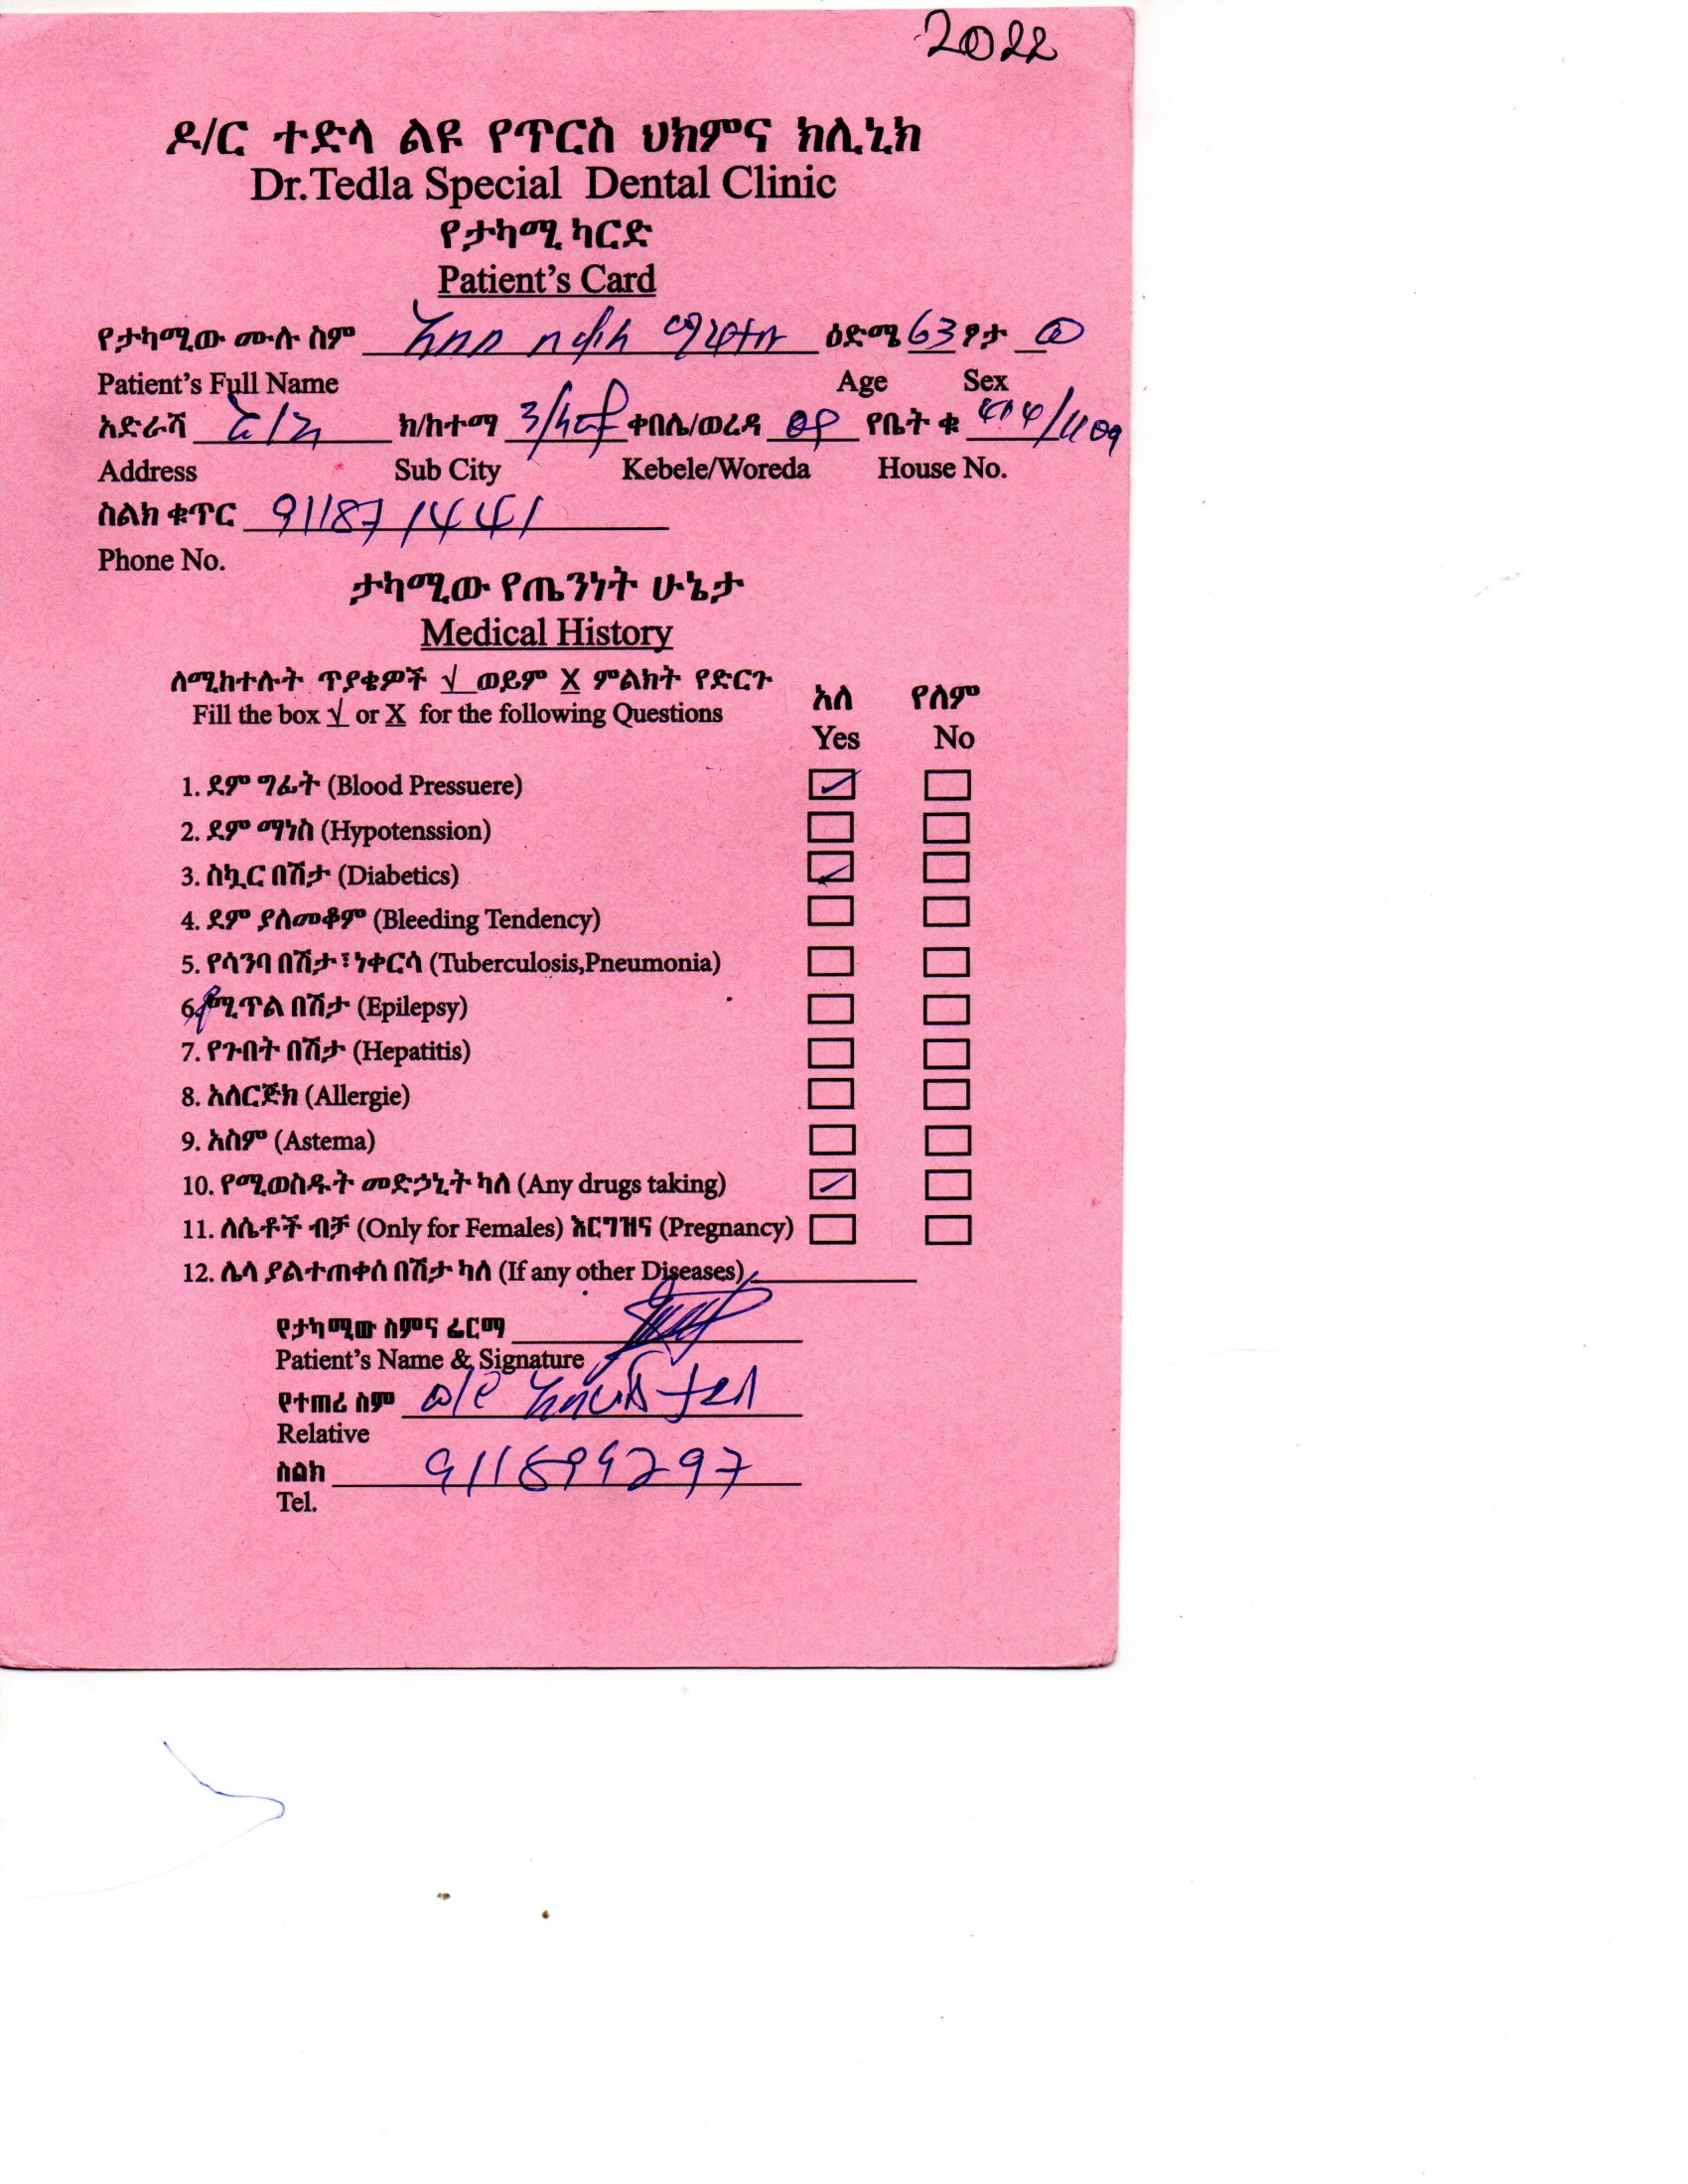 2022
ዶ/ር ተድላ ልዩ የጥርስ ህክምና ክሊኒክ
Dr.Tedla Special Dental Clinic
የታካሚ ካርድ
Patient's Card
የታካሚው ሙሉ ስም ዕድሜ 63 ፆታ
Patient's Full Name Age Sex
አድራሻ ክ/ከተማ ቀበሌ/ወረዳ የቤት ቁ
Address Sub City Kebele/Woreda House No.
ስልክ ቁጥር 911871441
Phone No.
ታካሚው የጤንነት ሁኔታ
Medical History
ለሚከተሉት ጥያቄዎች √ ወይም X ምልክት የድርጉ
Fill the box √ or X for the following Questions
አለ የለም
Yes No
1. ደም ግፊት (Blood Pressuere) ✓
2. ደም ማነስ (Hypotenssion)
3. ስኳር በሽታ (Diabetics) ✓
4. ደም ያለመቆም (Bleeding Tendency)
5. የሳንባ በሽታ፣ ነቀርሳ (Tuberculosis,Pneumonia)
6. የሚጥል በሽታ (Epilepsy)
7. የጉበት በሽታ (Hepatitis)
8. አለርጅክ (Allergie)
9. አስም (Astema)
10. የሚወስዱት መድኃኒት ካለ (Any drugs taking) ✓
11. ለሴቶች ብቻ (Only for Females) እርግዝና (Pregnancy)
12. ሌላ ያልተጠቀሰ በሽታ ካለ (If any other Diseases)
የታካሚው ስምና ፊርማ
Patient's Name & Signature
የተጠሪ ስም
Relative
ስልክ
Tel.